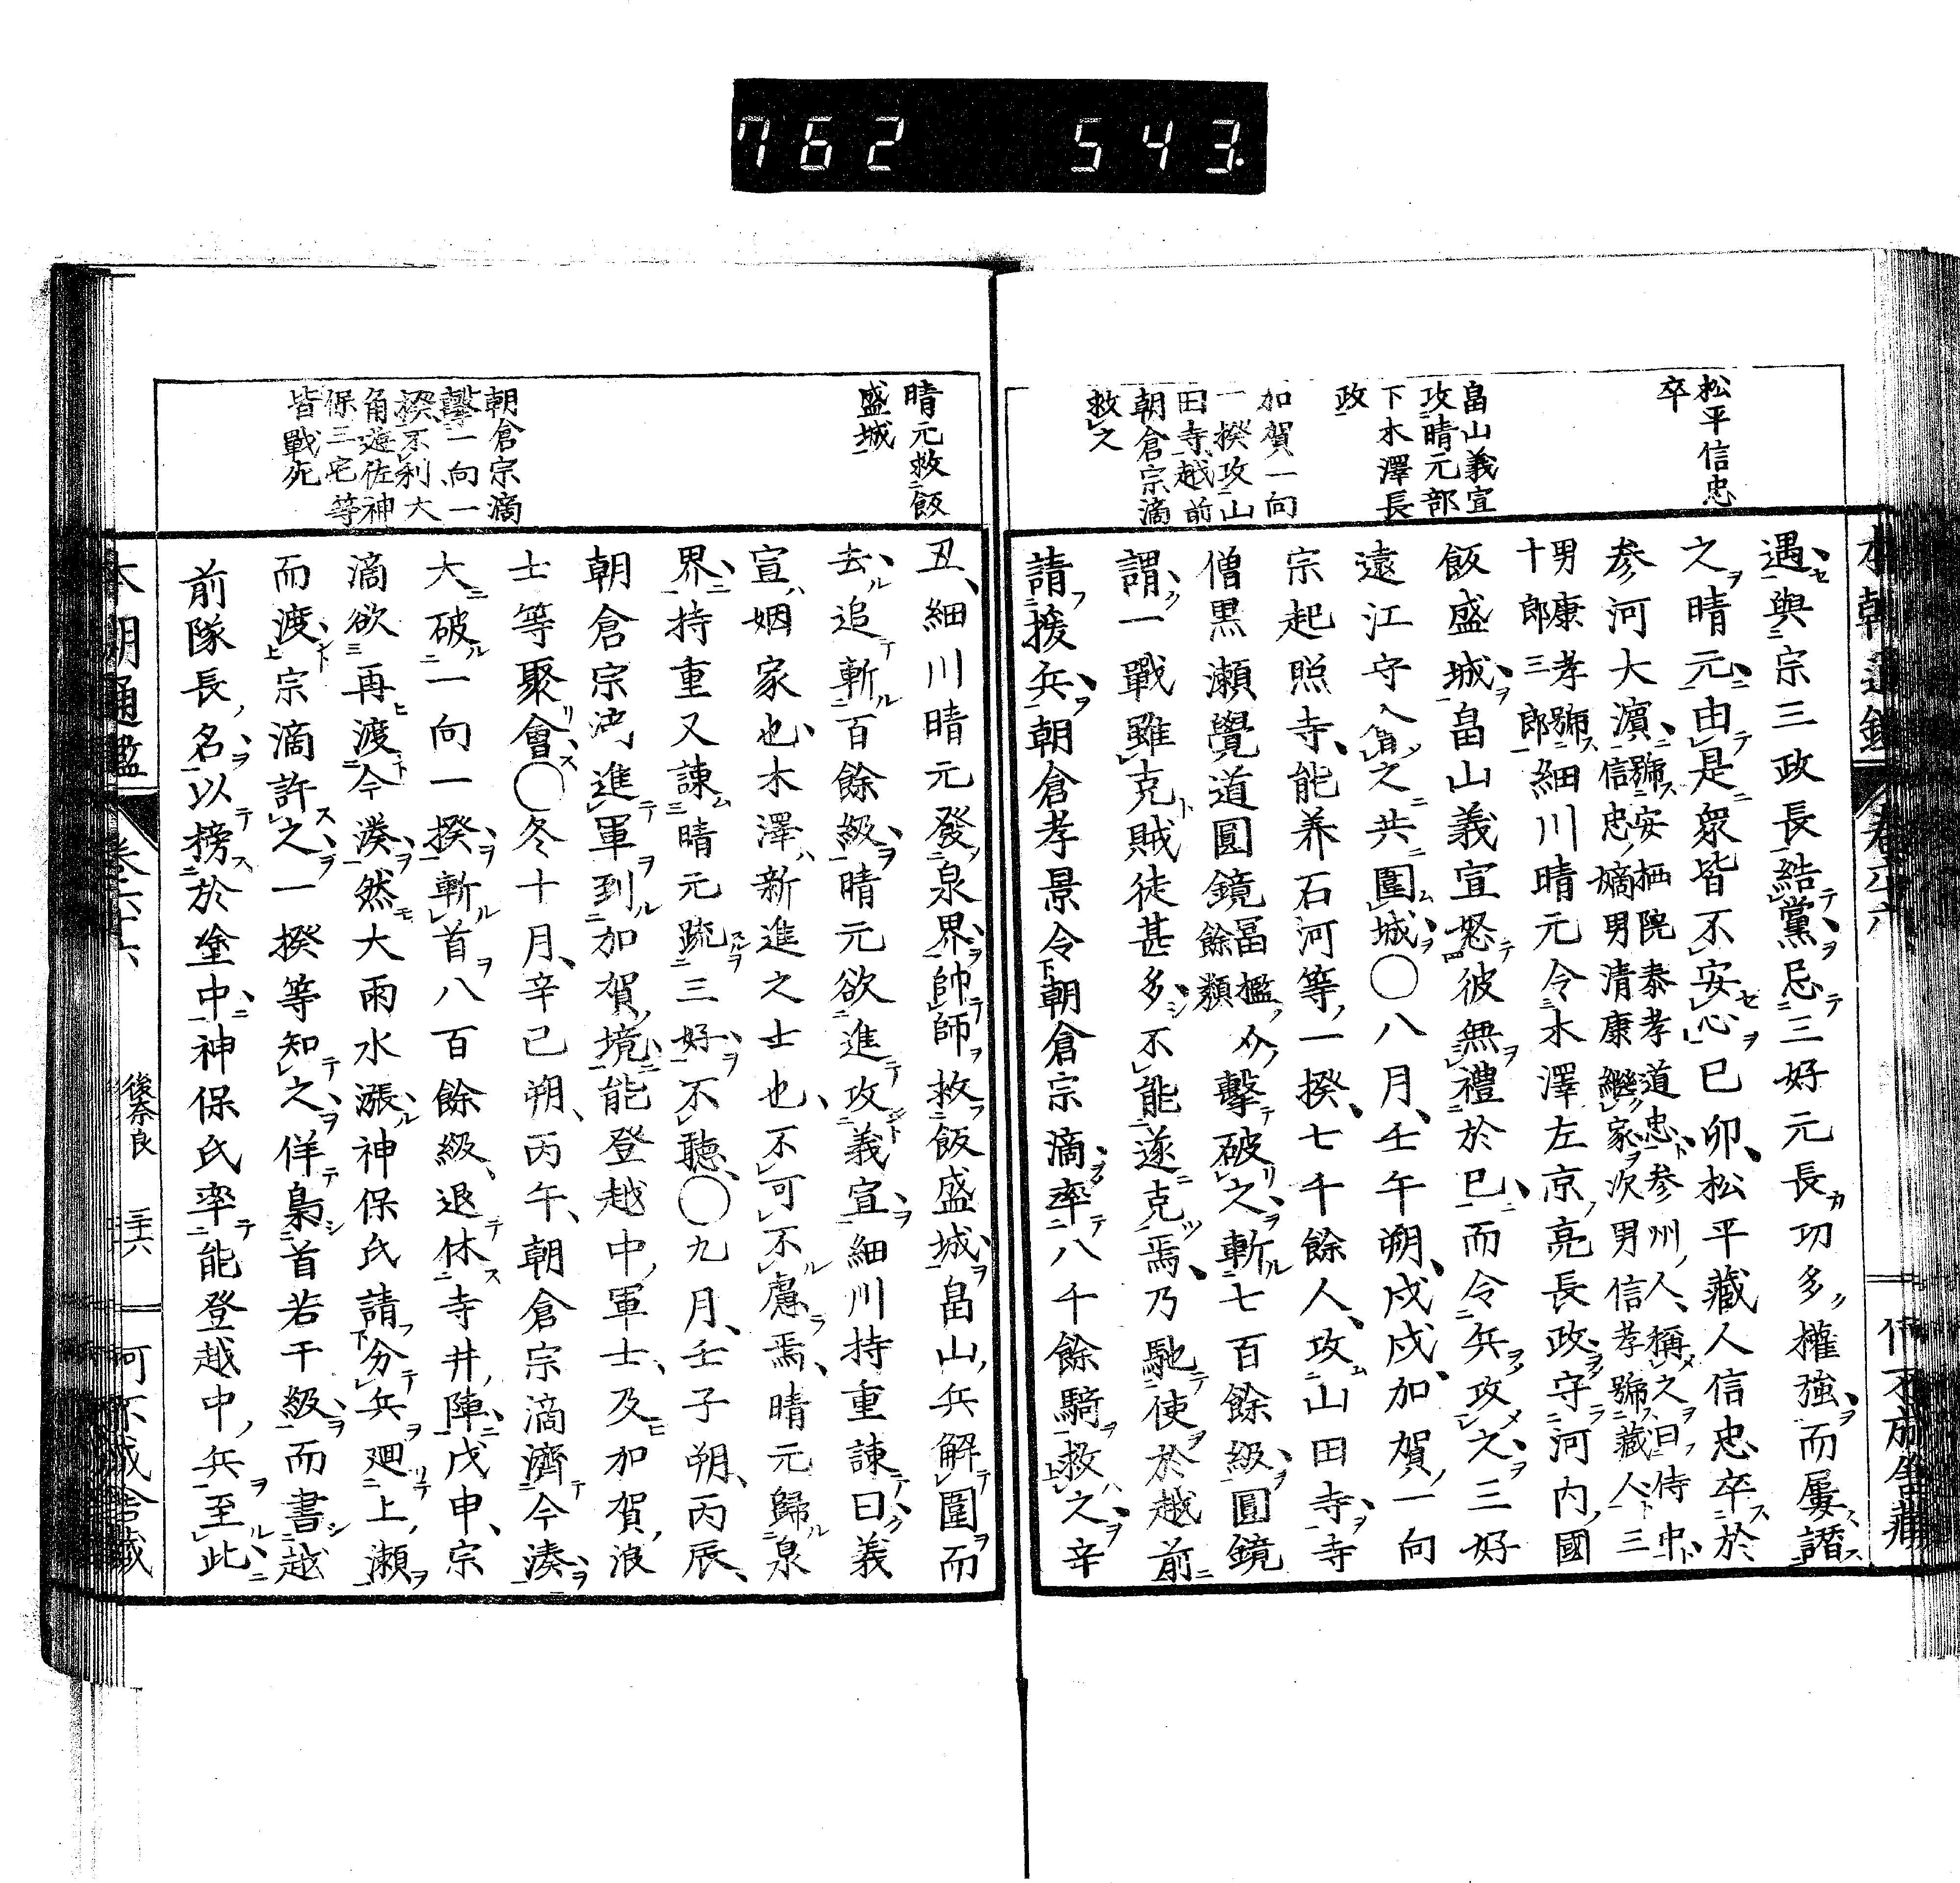 762 543
松平信忠
卒
畠山義宜
攻晴元部
下木澤長
政
加賀一向
一揆攻山
田寺越前
朝倉宗滴
救之
遇與宗三政長結黨忌三好元長功多權強而屢譖
之晴元由是衆皆不安心已卯松平藏人信忠卒於
参河大濵號安栖院泰孝道忠参州人稱之曰侍中
信忠嫡男清康繼家次男信孝號藏人三
男康孝號
十郎三郎細川晴元令木澤左京亮長政守河内國
飯盛城畠山義宜怒彼無禮於已而令兵攻之三好
遠江守入自之共圍城○八月壬午朔戌戌加賀一向
宗起照寺能养石河等一揆七千餘人攻山田寺寺
僧黒瀬覺道圓鏡冨樫餘類擊破之斬七百餘級圓鏡
謂一戰雖克賊徒甚多不能遂克焉乃馳使於越前
請援兵朝倉孝景令朝倉宗滴率八千餘騎救之辛
晴元救飯
盛城
朝倉宗滴
擊一向一
揆不利大
角遊佐神
保三宅等
皆戰死
丑細川晴元發泉界帥師救飯盛城畠山兵解圍而
去追斬百餘級晴元欲進攻義宣細川持重諫曰義
宣姻家也木澤新進之士也不可不慮焉晴元歸泉
界持重又諫晴元疏三好不聽○九月壬子朔丙辰
朝倉宗滴進軍到加賀境能登越中軍士及加賀浪
士等聚會○冬十月辛已朔丙午朝倉宗滴濟今湊
大破一向一揆斬首八百餘級退休寺井陣戊申宗
滴欲再渡今湊然大雨水漲神保氏請分兵廻上瀬
而渡宗滴許之一揆等知之佯梟首若干級而書越
前隊長名以榜於塗中神保氏率能登越中兵至此
本朝通鑑 卷六十六 後奈良 三十六 何不成舎藏